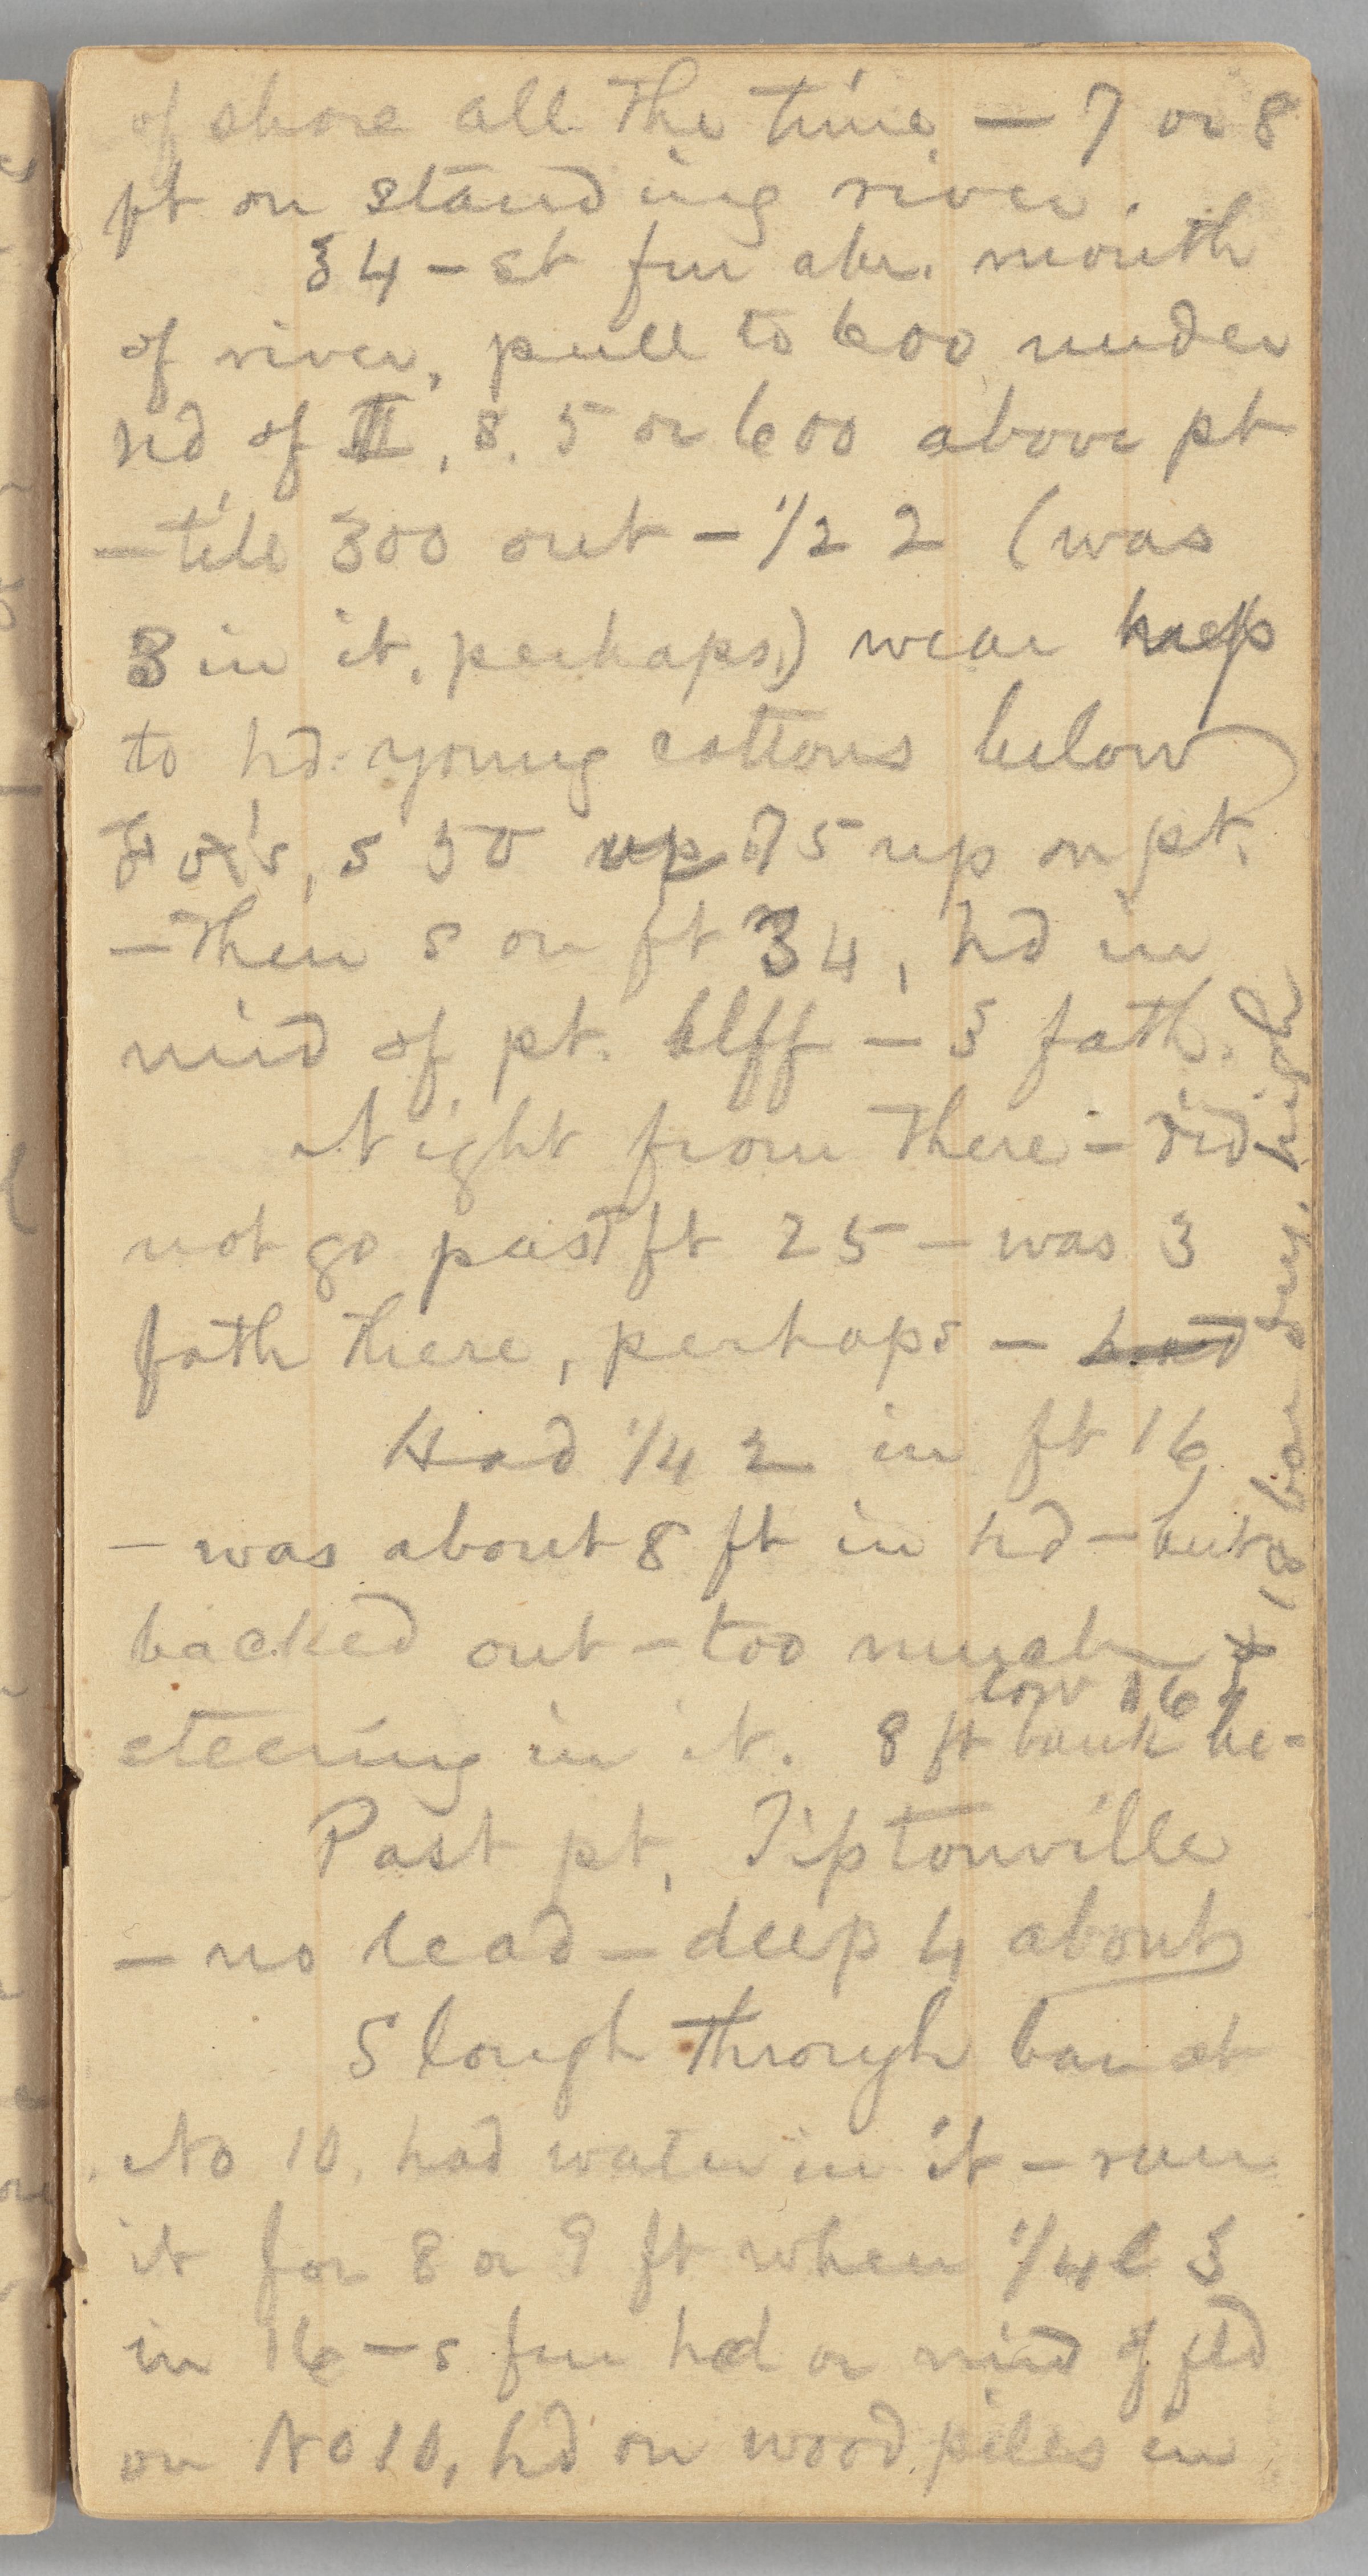 of shore all the time, — 7 or 8
pt on standing river.
34 — st fm abv. mouth
of river, pull to 600 under
hd of II, s. 5 or 600 above pt
— till 300 out — 1/2 2 (was
3 in it, perhaps,) wear
to hd young cottons below
Fox's, s 50 up 75 up on pt.
— Then s on ft 34, hd in
mid of pt. blff — 3 fath.
Night from there — did
not go past ft 25 — was 3
fath there, perhaps — had
Had 1/4 2 in ft 16
— was about 8 ft in hd — but
backed out — too much
steering in it. 8 ft bank be-
low 16 +
+ (& bar dry, high)
Past pt, Tiptonville
— no lead — deep 4 about
Slough through bar at
No 10, had water in it — run
it for 8 or 9 ft when 1/4 l 3
in 16 — s fm hd or mid of fld
on No 10, hd on wood piles in